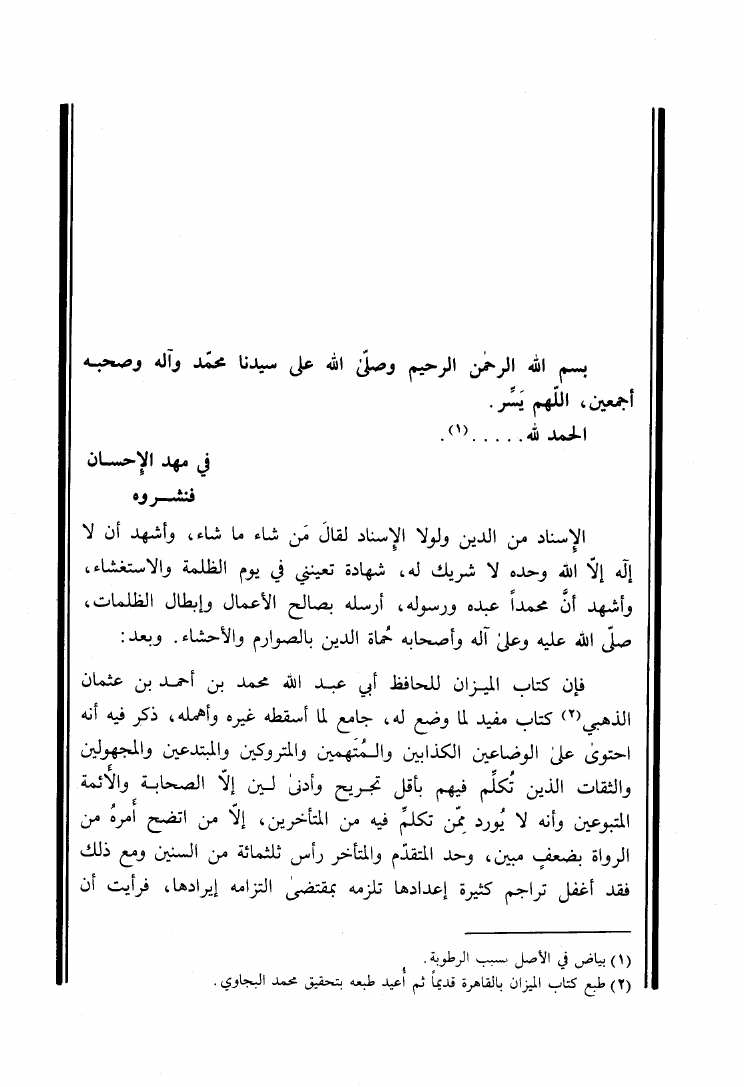 بسم الله الرحمٰن الرحيم وصلّىٰ الله على سيدنا محمّد وآله وصحبه
أجمعين، اللّهم يَسِّر.
الحمد لله . . . . . (١).
في مهد الإحسان
فنشروه
الإسناد من الدين ولولا الإسناد لقالَ مَن شاء ما شاء، وأشهد أن لا
إلٰه إلّا الله وحده لا شريك له، شهادة تعينني في يوم الظلمة والاستغشاء،
وأشهد أنَّ محمداً عبده ورسوله، أرسله بصالح الأعمال وإبطال الظلمات،
صلّى الله عليه وعلىٰ آله وأصحابه حُماة الدين بالصوارم والأحشاء. وبعد:
فإن كتاب الميزان للحافظ أبي عبد الله محمد بن أحمد بن عثمان
الذهبي(٢) كتاب مفيد لما وضع له، جامع لما أسقطه غيره وأهمله، ذكر فيه أنه
احتوىٰ علىٰ الوضاعين الكذابين والـمُتَهمين والمتروكين والمبتدعين والمجهولين
والثقات الذين تُكلِّم فيهم بأقل تجريح وأدنىٰ لـين إلّا الصحابة والأئمة
المتبوعين وأنه لا يُورد مِمّن تكلمِّ فيه من المتأخرين، إلّا من اتضح أمرهُ من
الرواة بضعفٍ مبين، وحد المتقدّم والمتأخر رأس ثلثمائة من السنين ومع ذلك
فقد أغفل تراجم كثيرة إعدادها تلزمه بمقتضىٰ التزامه إيرادها، فرأيت أن
(١) بياض في الأصل بسبب الرطوبة.
(٢) طبع كتاب الميزان بالقاهرة قديماً ثم أُعيد طبعه بتحقيق محمد البجاوي.